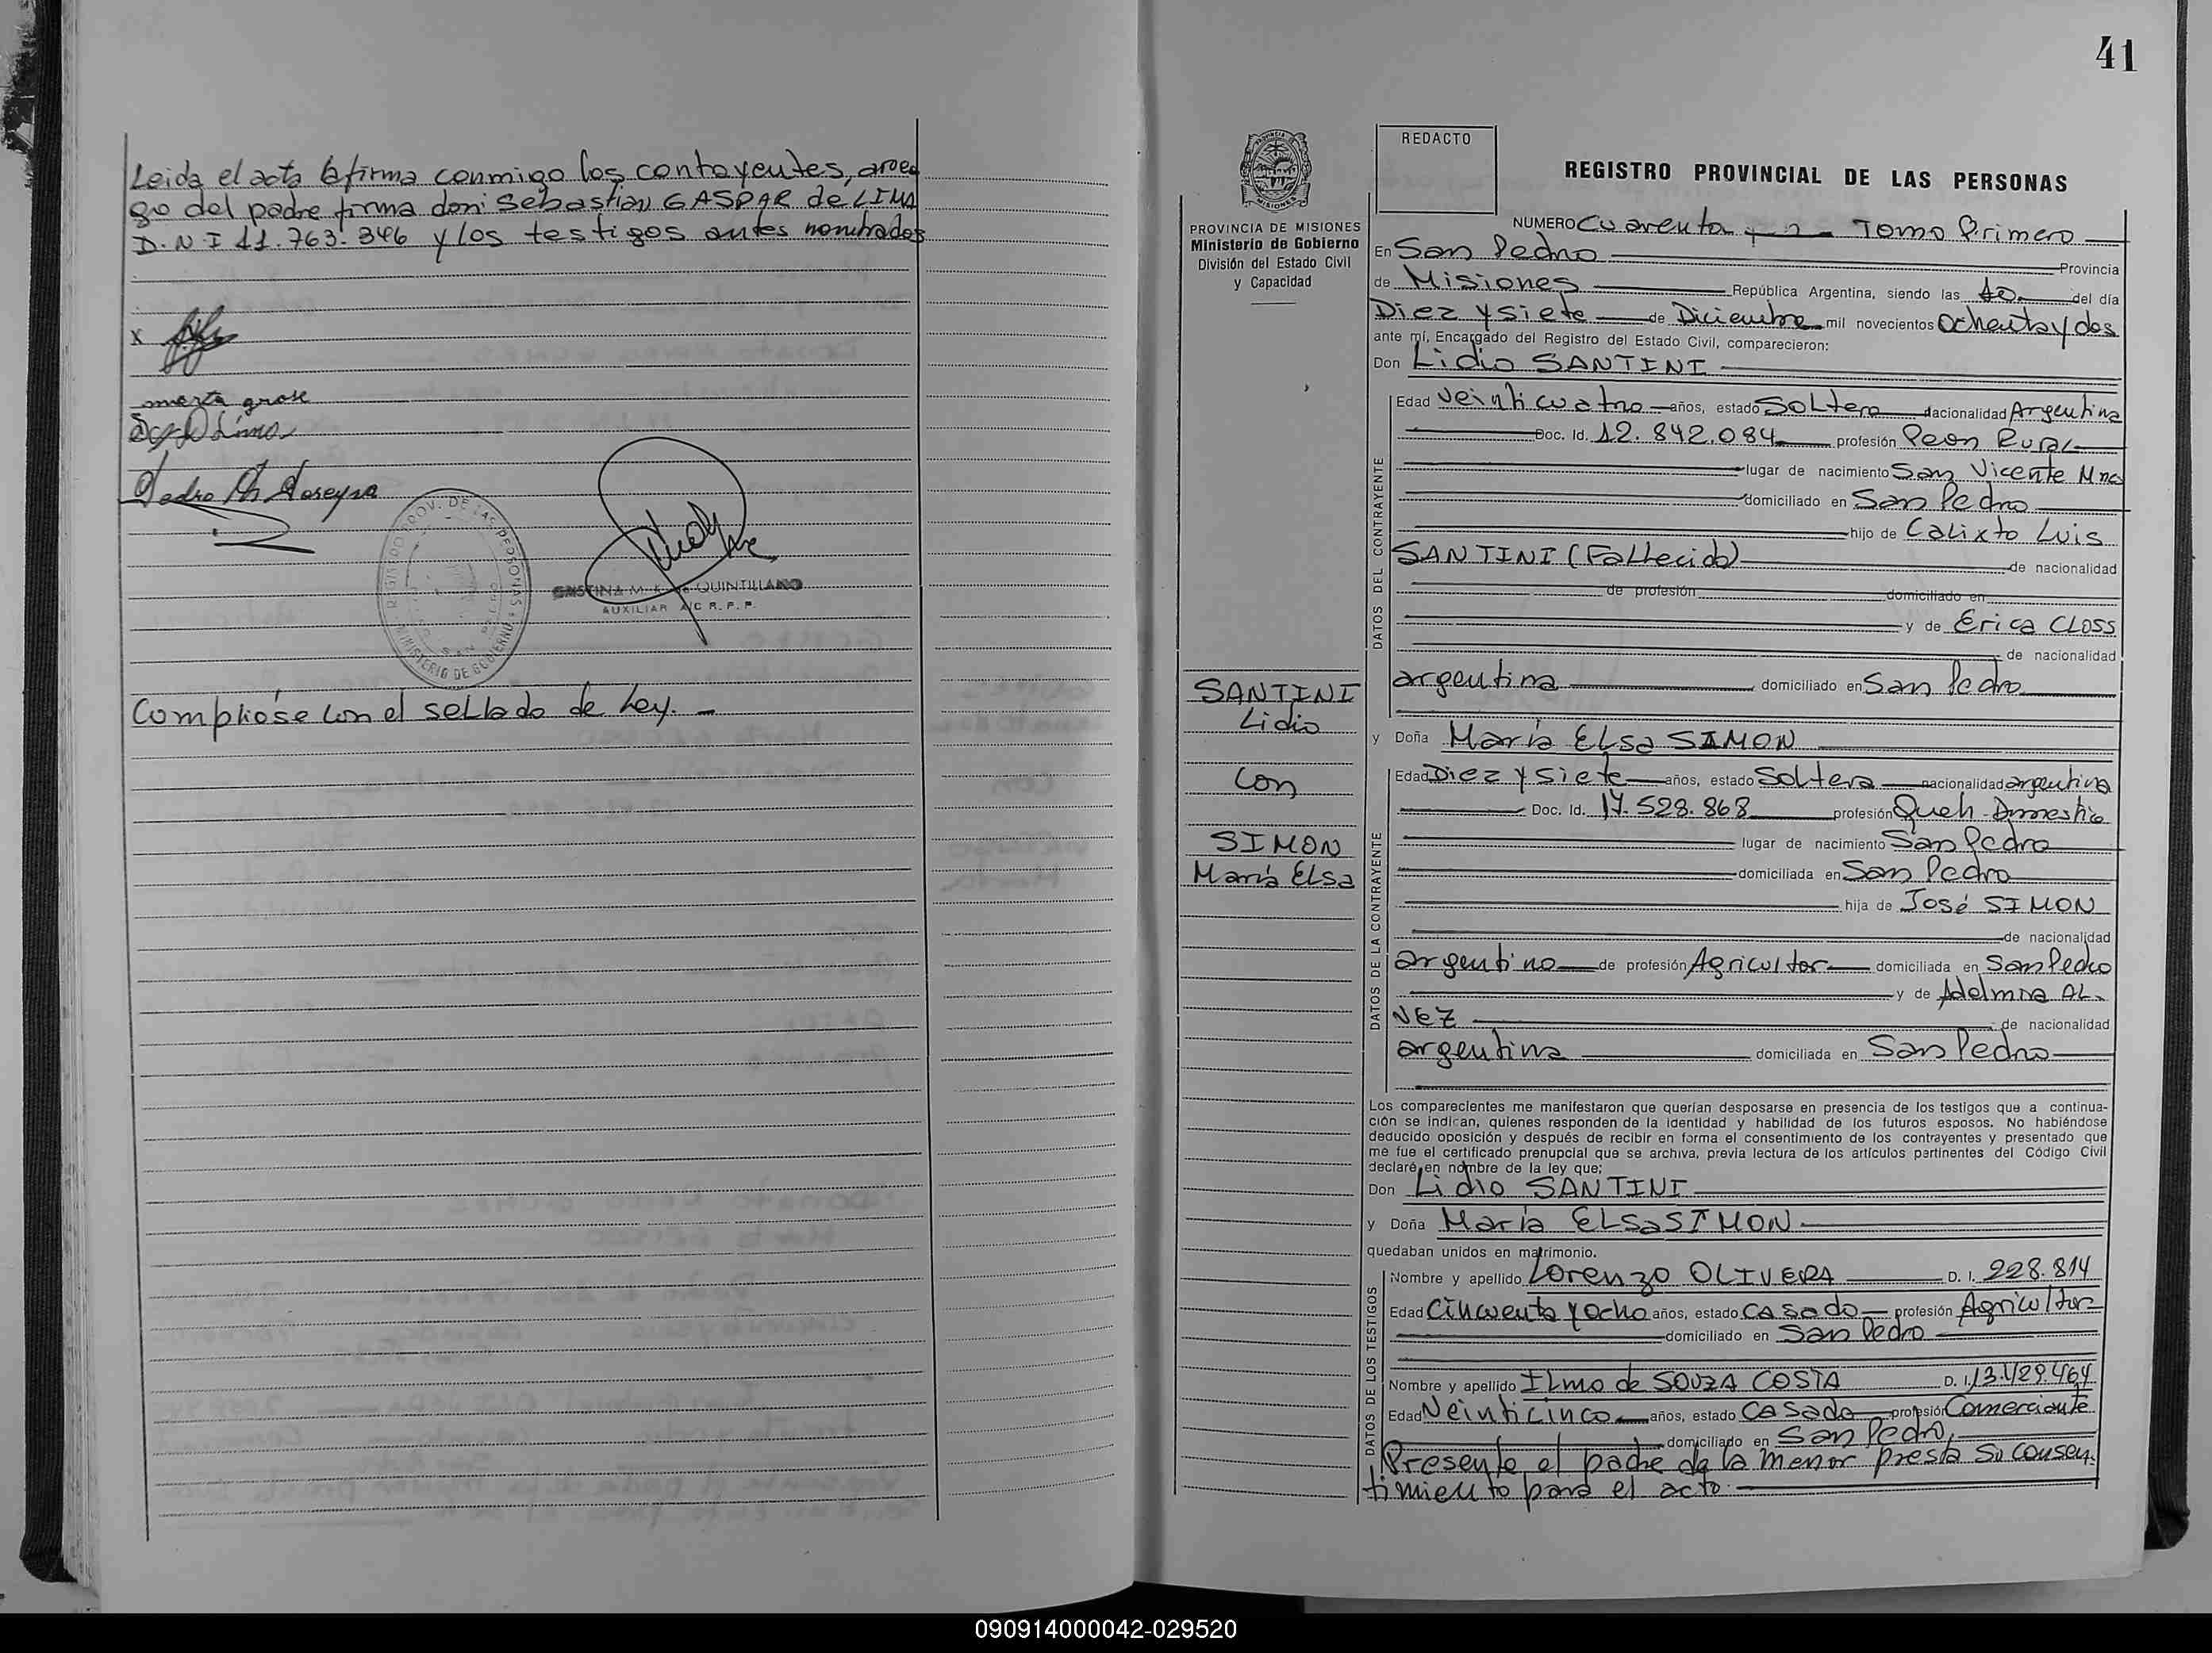 Leida el acta la firma conmigo los contayentes, arue
go del padre firma don: Sebastian GASPAR de LIMA
D.N.I 11.763.346 y los testigos antes nombrados
x
marta grose
Pedro Ch Doreyra
REGISTRO PROV. DE LAS PERSONAS
MINISTERIO DE GOBIERNO
QUINTILLANO
AUXILIAR A/C R. P. P.
Complióse con el sellado de Ley. -
41
PROVINCIA DE MISIONES
Ministerio de Gobierno
División del Estado Civil
y Capacidad
SANTINI
Lidio
Con
SIMON
María Elsa
REDACTO
REGISTRO PROVINCIAL DE LAS PERSONAS
NUMERO Cuarenta y un Tomo Primero
En San Pedro Provincia
de Misiones República Argentina, siendo las 10 del día
Diez y siete de Diciembre mil novecientos Ochenta y dos
ante mí, Encargado del Registro del Estado Civil, comparecieron:
Don Lidio SANTINI
DATOS DEL CONTRAYENTE
Edad Veinticuatro años, estado Soltero nacionalidad Argentina
Doc. Id. 12.842.084 profesión Peon Rural
lugar de nacimiento San Vicente Mnes
domiciliado en San Pedro
hijo de Calixto Luis
SANTINI (Fallecido) de nacionalidad
de profesión domiciliado en
y de Erica CLOSS
de nacionalidad
argentina domiciliado en San Pedro
y Doña María Elsa SIMON
DATOS DE LA CONTRAYENTE
Edad Diez y Siete años, estado Soltera nacionalidad argentina
Doc. Id. 17.528.868 profesión Queh-Domestico
lugar de nacimiento San Pedro
domiciliada en San Pedro
hija de José SIMON
de nacionalidad
argentino de profesión Agricultor domiciliada en San Pedro
y de Adelmira AL-
VEZ de nacionalidad
argentina domiciliada en San Pedro
Los comparecientes me manifestaron que querían desposarse en presencia de los testigos que a continua-
ción se indican, quienes responden de la identidad y habilidad de los futuros esposos. No habiéndose
deducido oposición y después de recibir en forma el consentimiento de los contrayentes y presentado que
me fue el certificado prenupcial que se archiva, previa lectura de los artículos pertinentes del Código Civil
declaré en nombre de la ley que;
Don Lidio SANTINI
y Doña María Elsa SIMON
quedaban unidos en matrimonio.
DATOS DE LOS TESTIGOS
Nombre y apellido Lorenzo OLIVERA D. I. 228.814
Edad Cincuenta y ocho años, estado casado profesión Agricultor
domiciliado en San Pedro
Nombre y apellido Ilmo de SOUZA COSTA D. I. 13.129.464
Edad Veinticinco años, estado Casado profesión Comerciante
domiciliado en San Pedro,
Presente el padre de la menor presta su consen-
timiento para el acto.
090914000042-029520